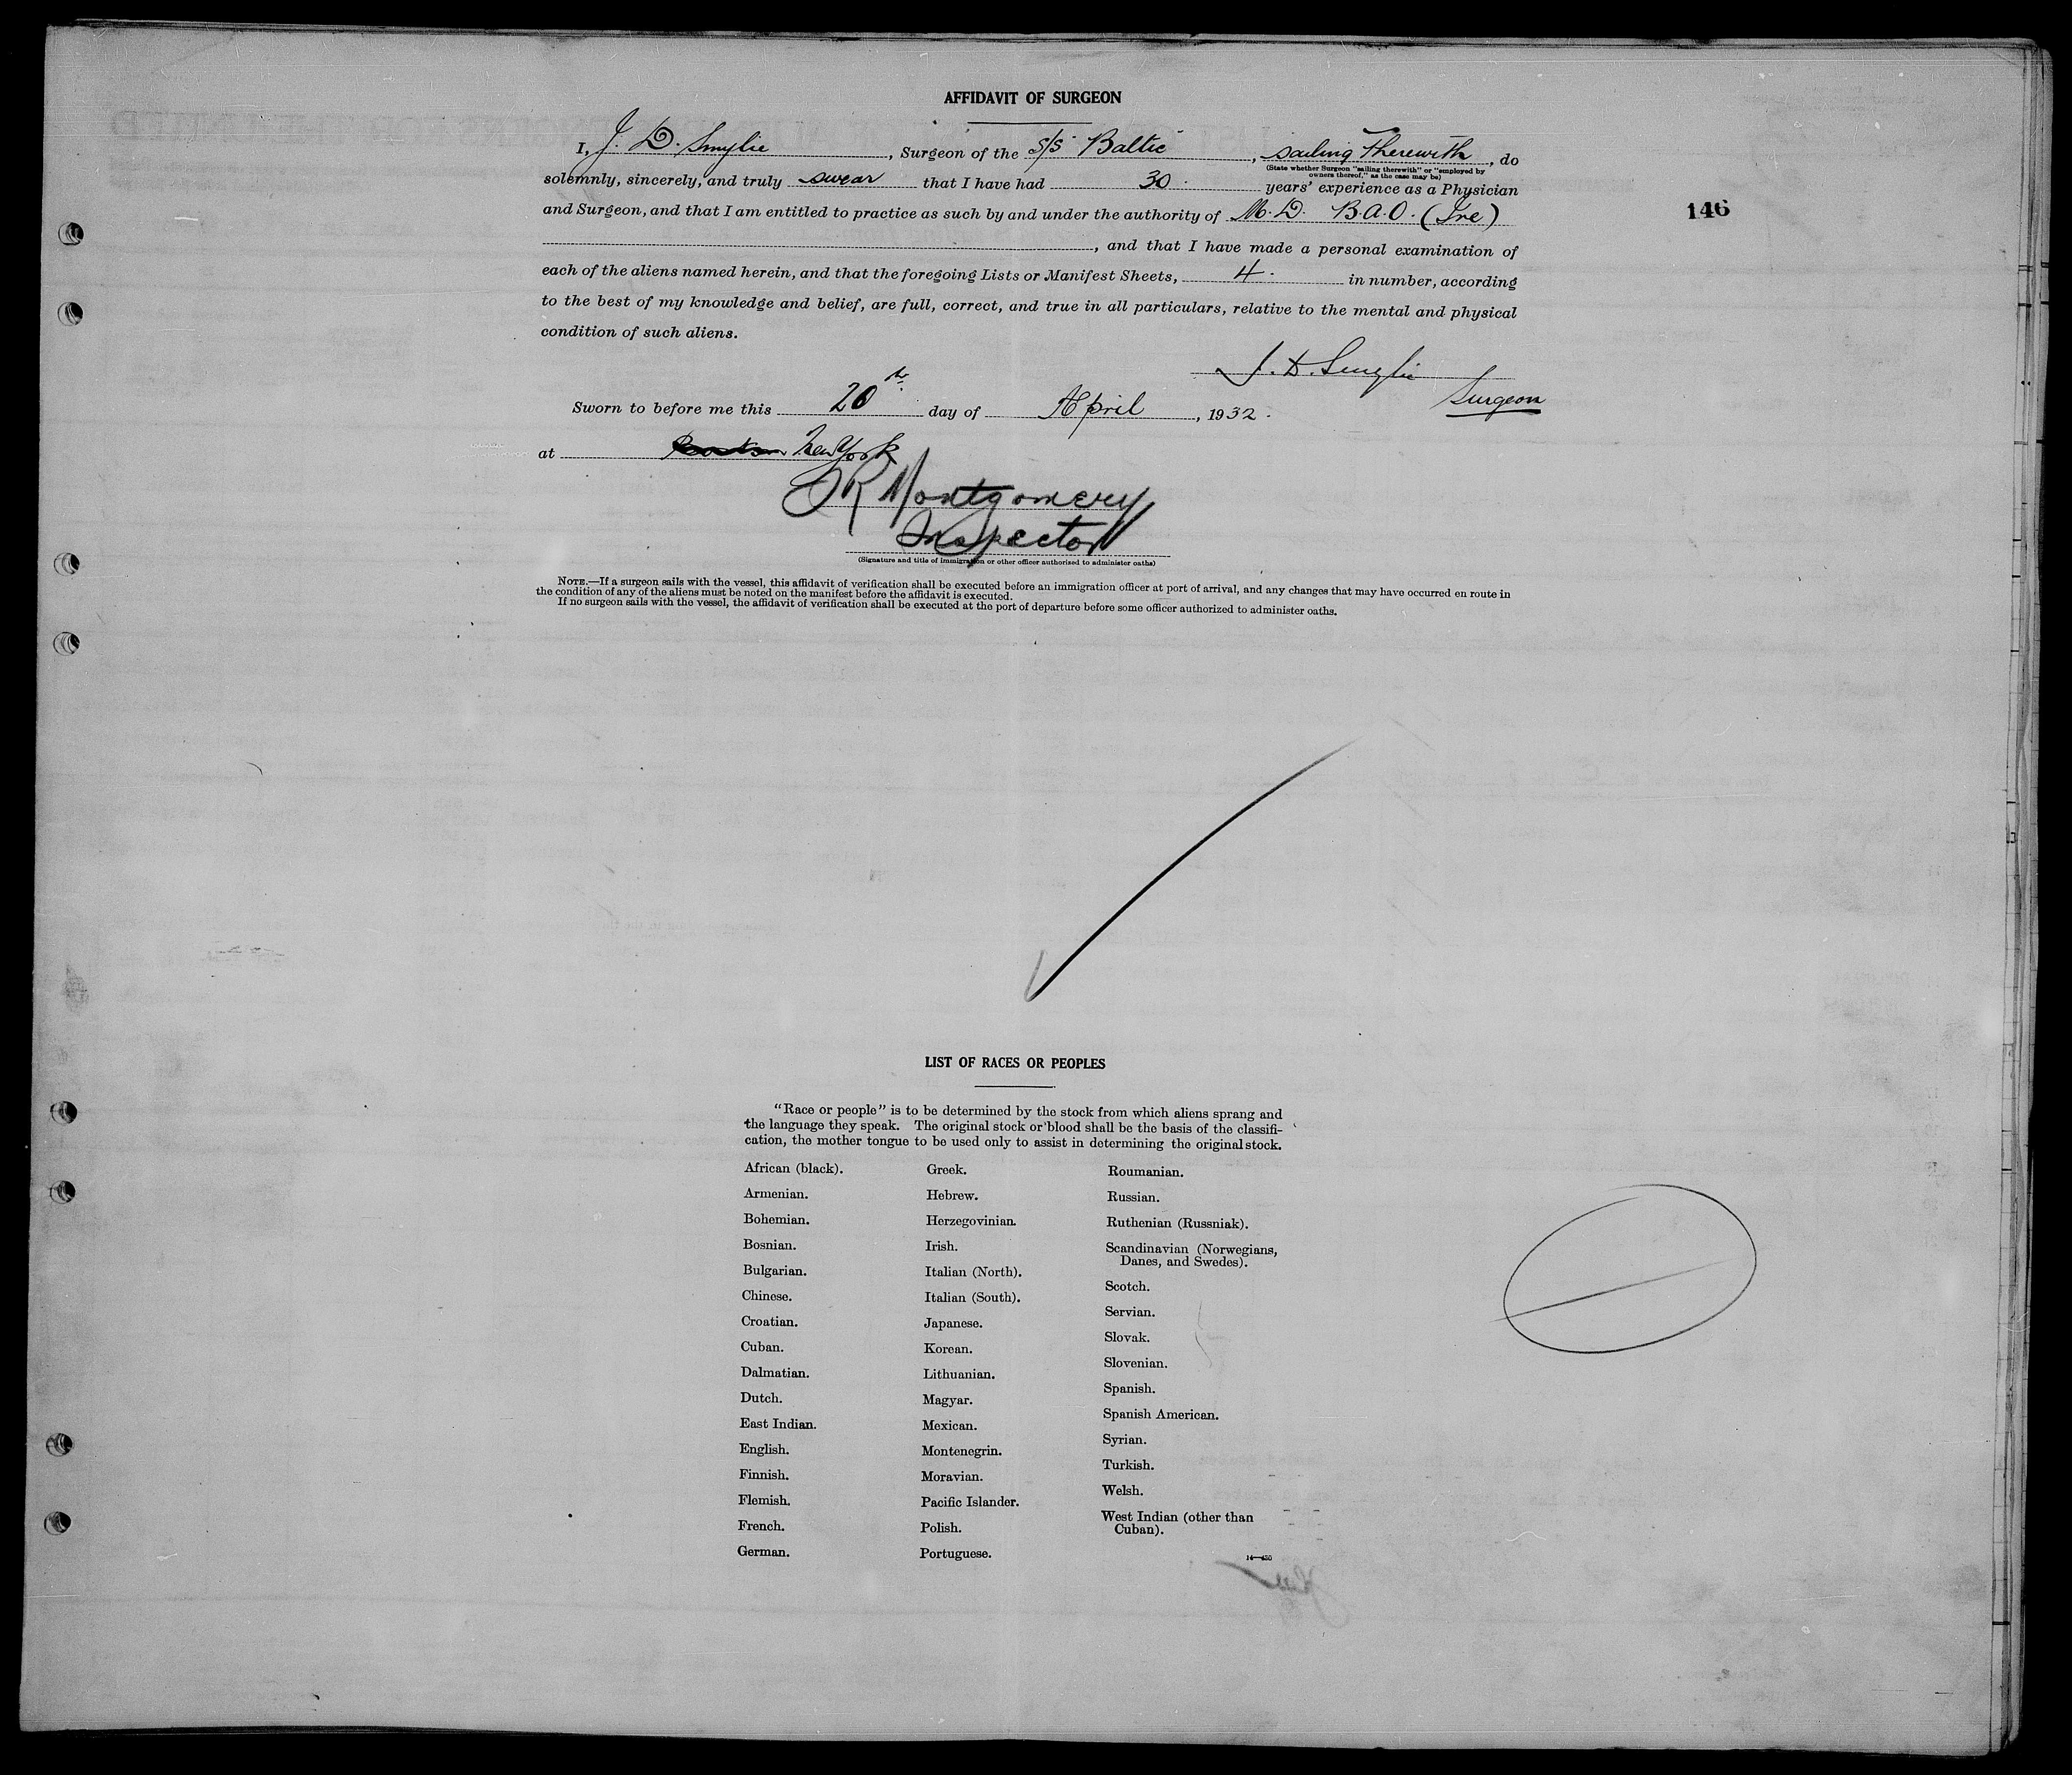 AFFIDAVIT OF SURGEON
I, J. D. Smylie, Surgeon of the S/S "Baltic", sailing Therewith, do
(State whether Surgeon "sailing therewith" or "employed by
owners thereof," as the case may be)
solemnly, sincerely, and truly swear that I have had 30 years' experience as a Physician
and Surgeon, and that I am entitled to practice as such by and under the authority of M.D. B.A.O. (Ire)
146
, and that I have made a personal examination of
each of the aliens named herein, and that the foregoing Lists or Manifest Sheets, 4. in number, according
to the best of my knowledge and belief, are full, correct, and true in all particulars, relative to the mental and physical
condition of such aliens.
J. D. Smylie
Surgeon
Sworn to before me this 20th day of April, 1932.
at New York
Montgomery
Inspector
(Signature and title of immigration or other officer authorized to administer oaths)
NOTE.—If a surgeon sails with the vessel, this affidavit of verification shall be executed before an immigration officer at port of arrival, and any changes that may have occurred en route in
the condition of any of the aliens must be noted on the manifest before the affidavit is executed.
If no surgeon sails with the vessel, the affidavit of verification shall be executed at the port of departure before some officer authorized to administer oaths.
LIST OF RACES OR PEOPLES
"Race or people" is to be determined by the stock from which aliens sprang and
the language they speak. The original stock or blood shall be the basis of the classifi-
cation, the mother tongue to be used only to assist in determining the original stock.
African (black).
Armenian.
Bohemian.
Bosnian.
Bulgarian.
Chinese.
Croatian.
Cuban.
Dalmatian.
Dutch.
East Indian.
English.
Finnish.
Flemish.
French.
German.
Greek.
Hebrew.
Herzegovinian.
Irish.
Italian (North).
Italian (South).
Japanese.
Korean.
Lithuanian.
Magyar.
Mexican.
Montenegrin.
Moravian.
Pacific Islander.
Polish.
Portuguese.
Roumanian.
Russian.
Ruthenian (Russniak).
Scandinavian (Norwegians,
Danes, and Swedes).
Scotch.
Servian.
Slovak.
Slovenian.
Spanish.
Spanish American.
Syrian.
Turkish.
Welsh.
West Indian (other than
Cuban).
14—430